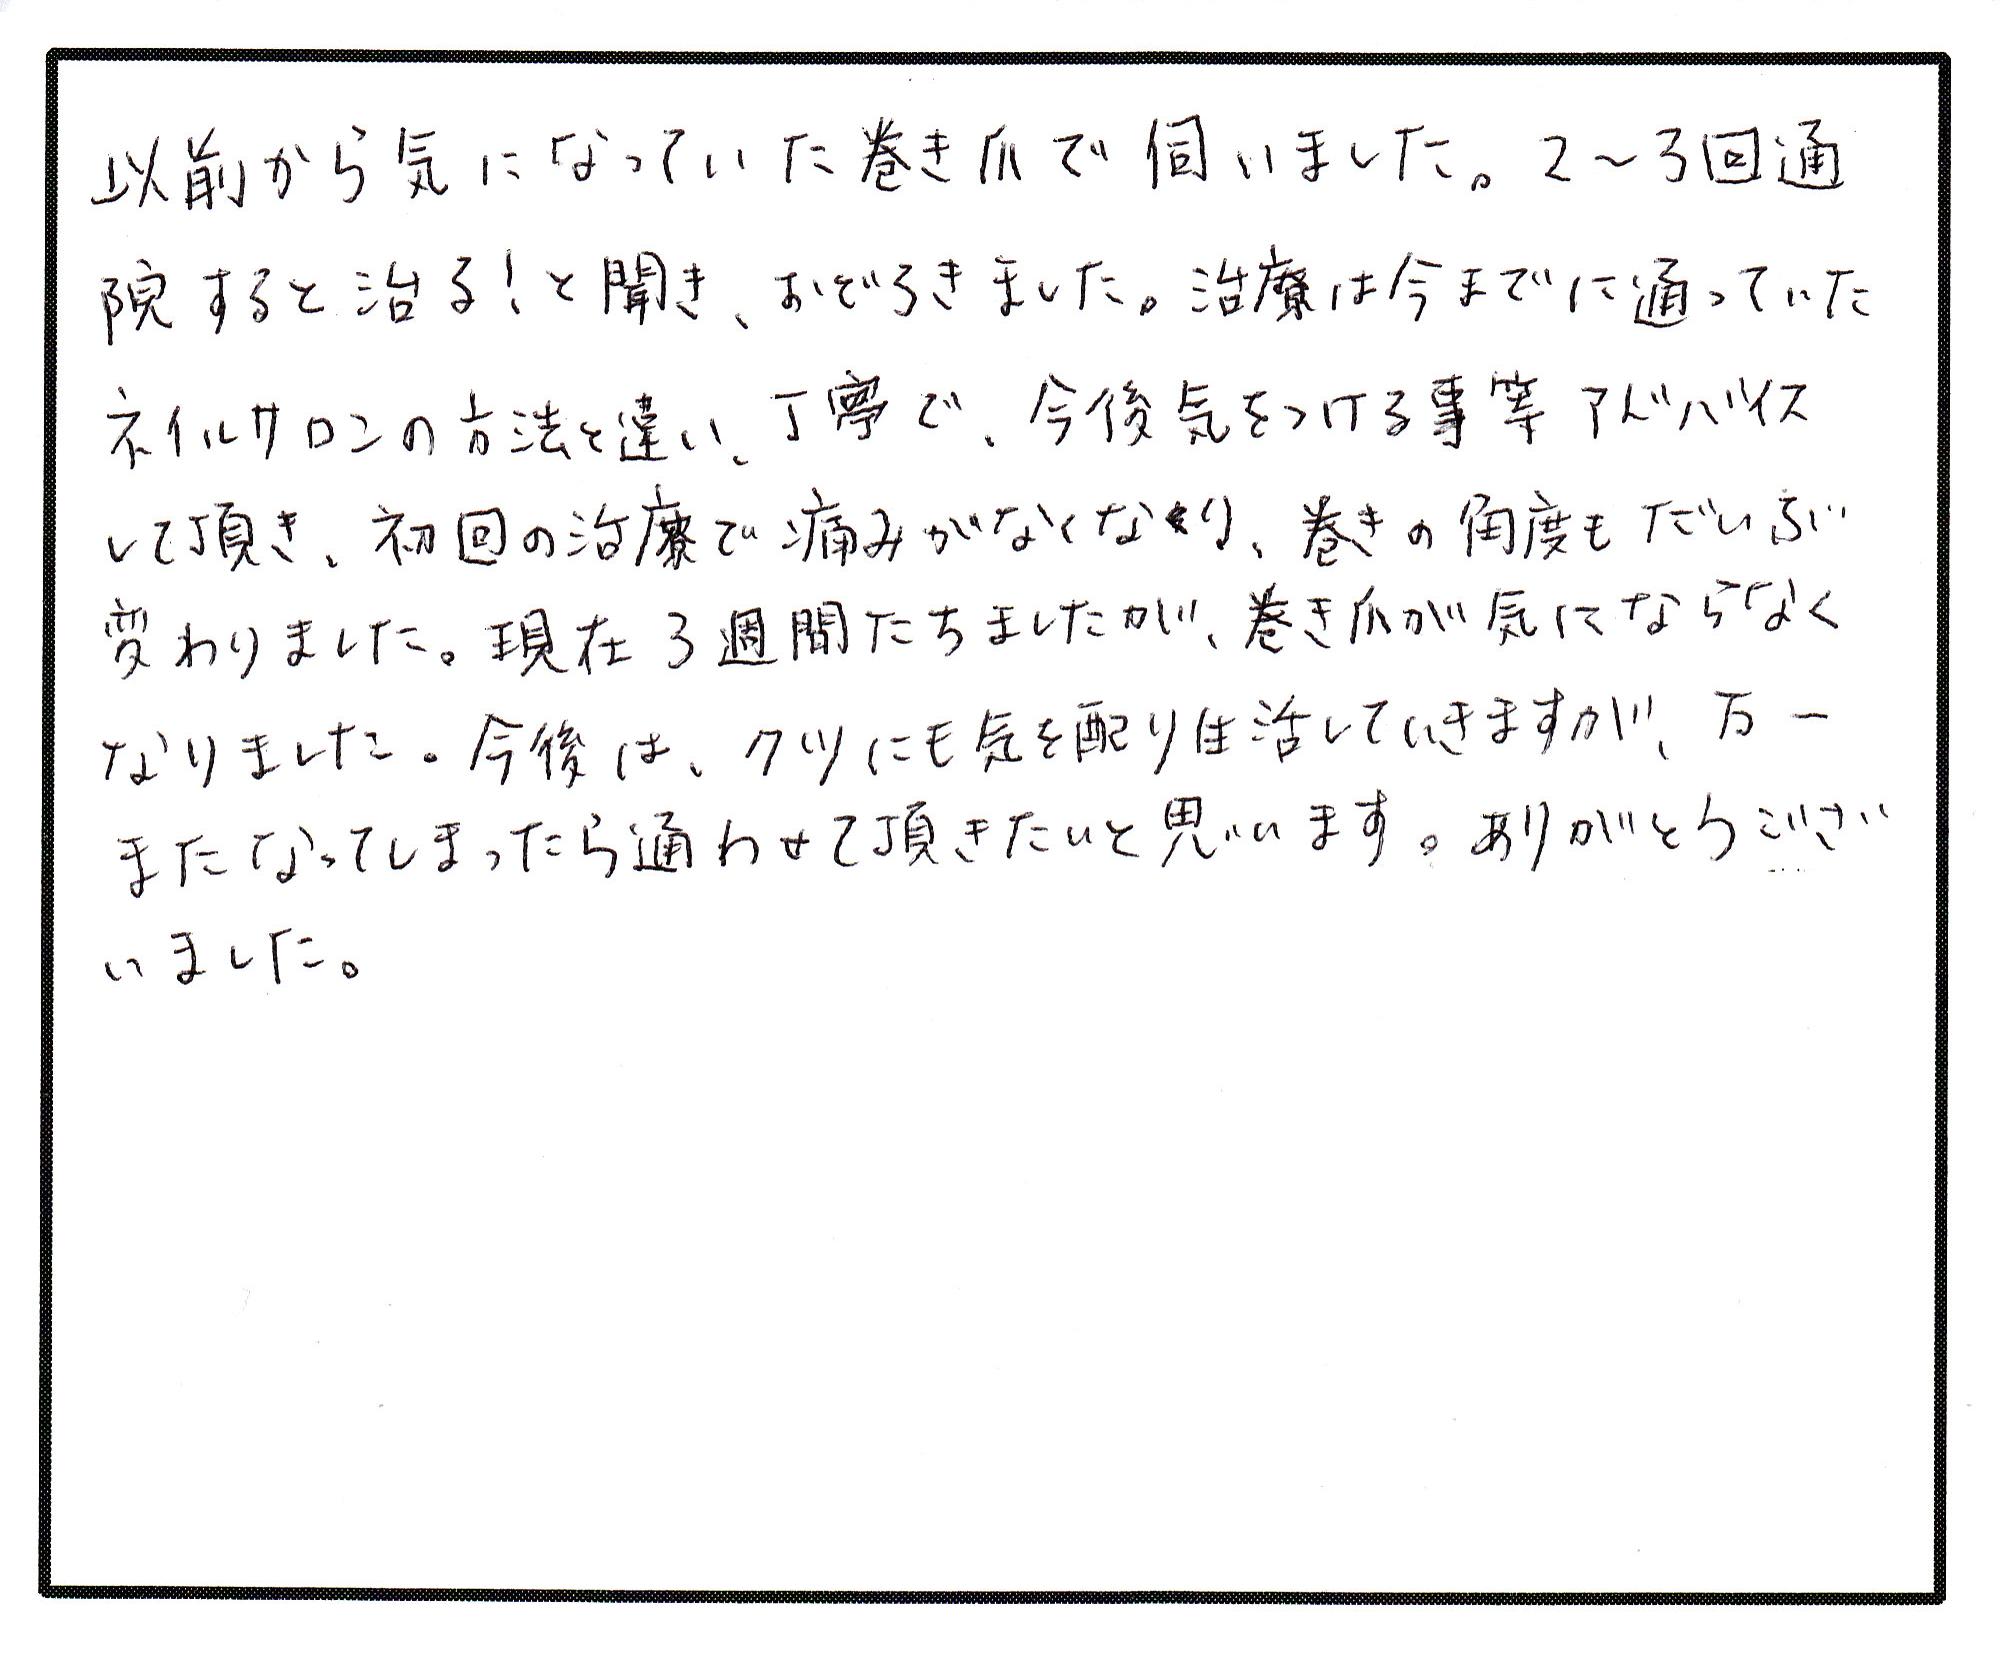 以前から気になっていた巻き爪で伺いました。2～3回通
院すると治る!と聞き、おどろきました。治療は今までに通っていた
ネイルサロンの方法と違い、丁寧で、今後気をつける事等アドバイス
して頂き、初回の治療で痛みがなくなり、巻きの角度もだいぶ
変わりました。現在3週間たちましたが、巻き爪が気にならなく
なりました。今後は、クツにも気を配り生活していきますが、万一
またなってしまったら通わせて頂きたいと思います。ありがとうござ
いました。